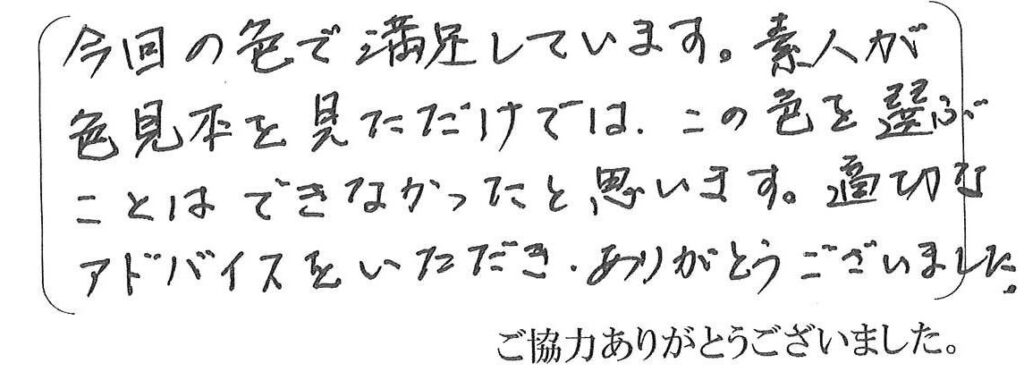 今回の色で満足しています。素人が
色見本を見ただけでは、この色を選ぶ
ことはできなかったと思います。適切な
アドバイスをいただき、ありがとうございました。
ご協力ありがとうございました。